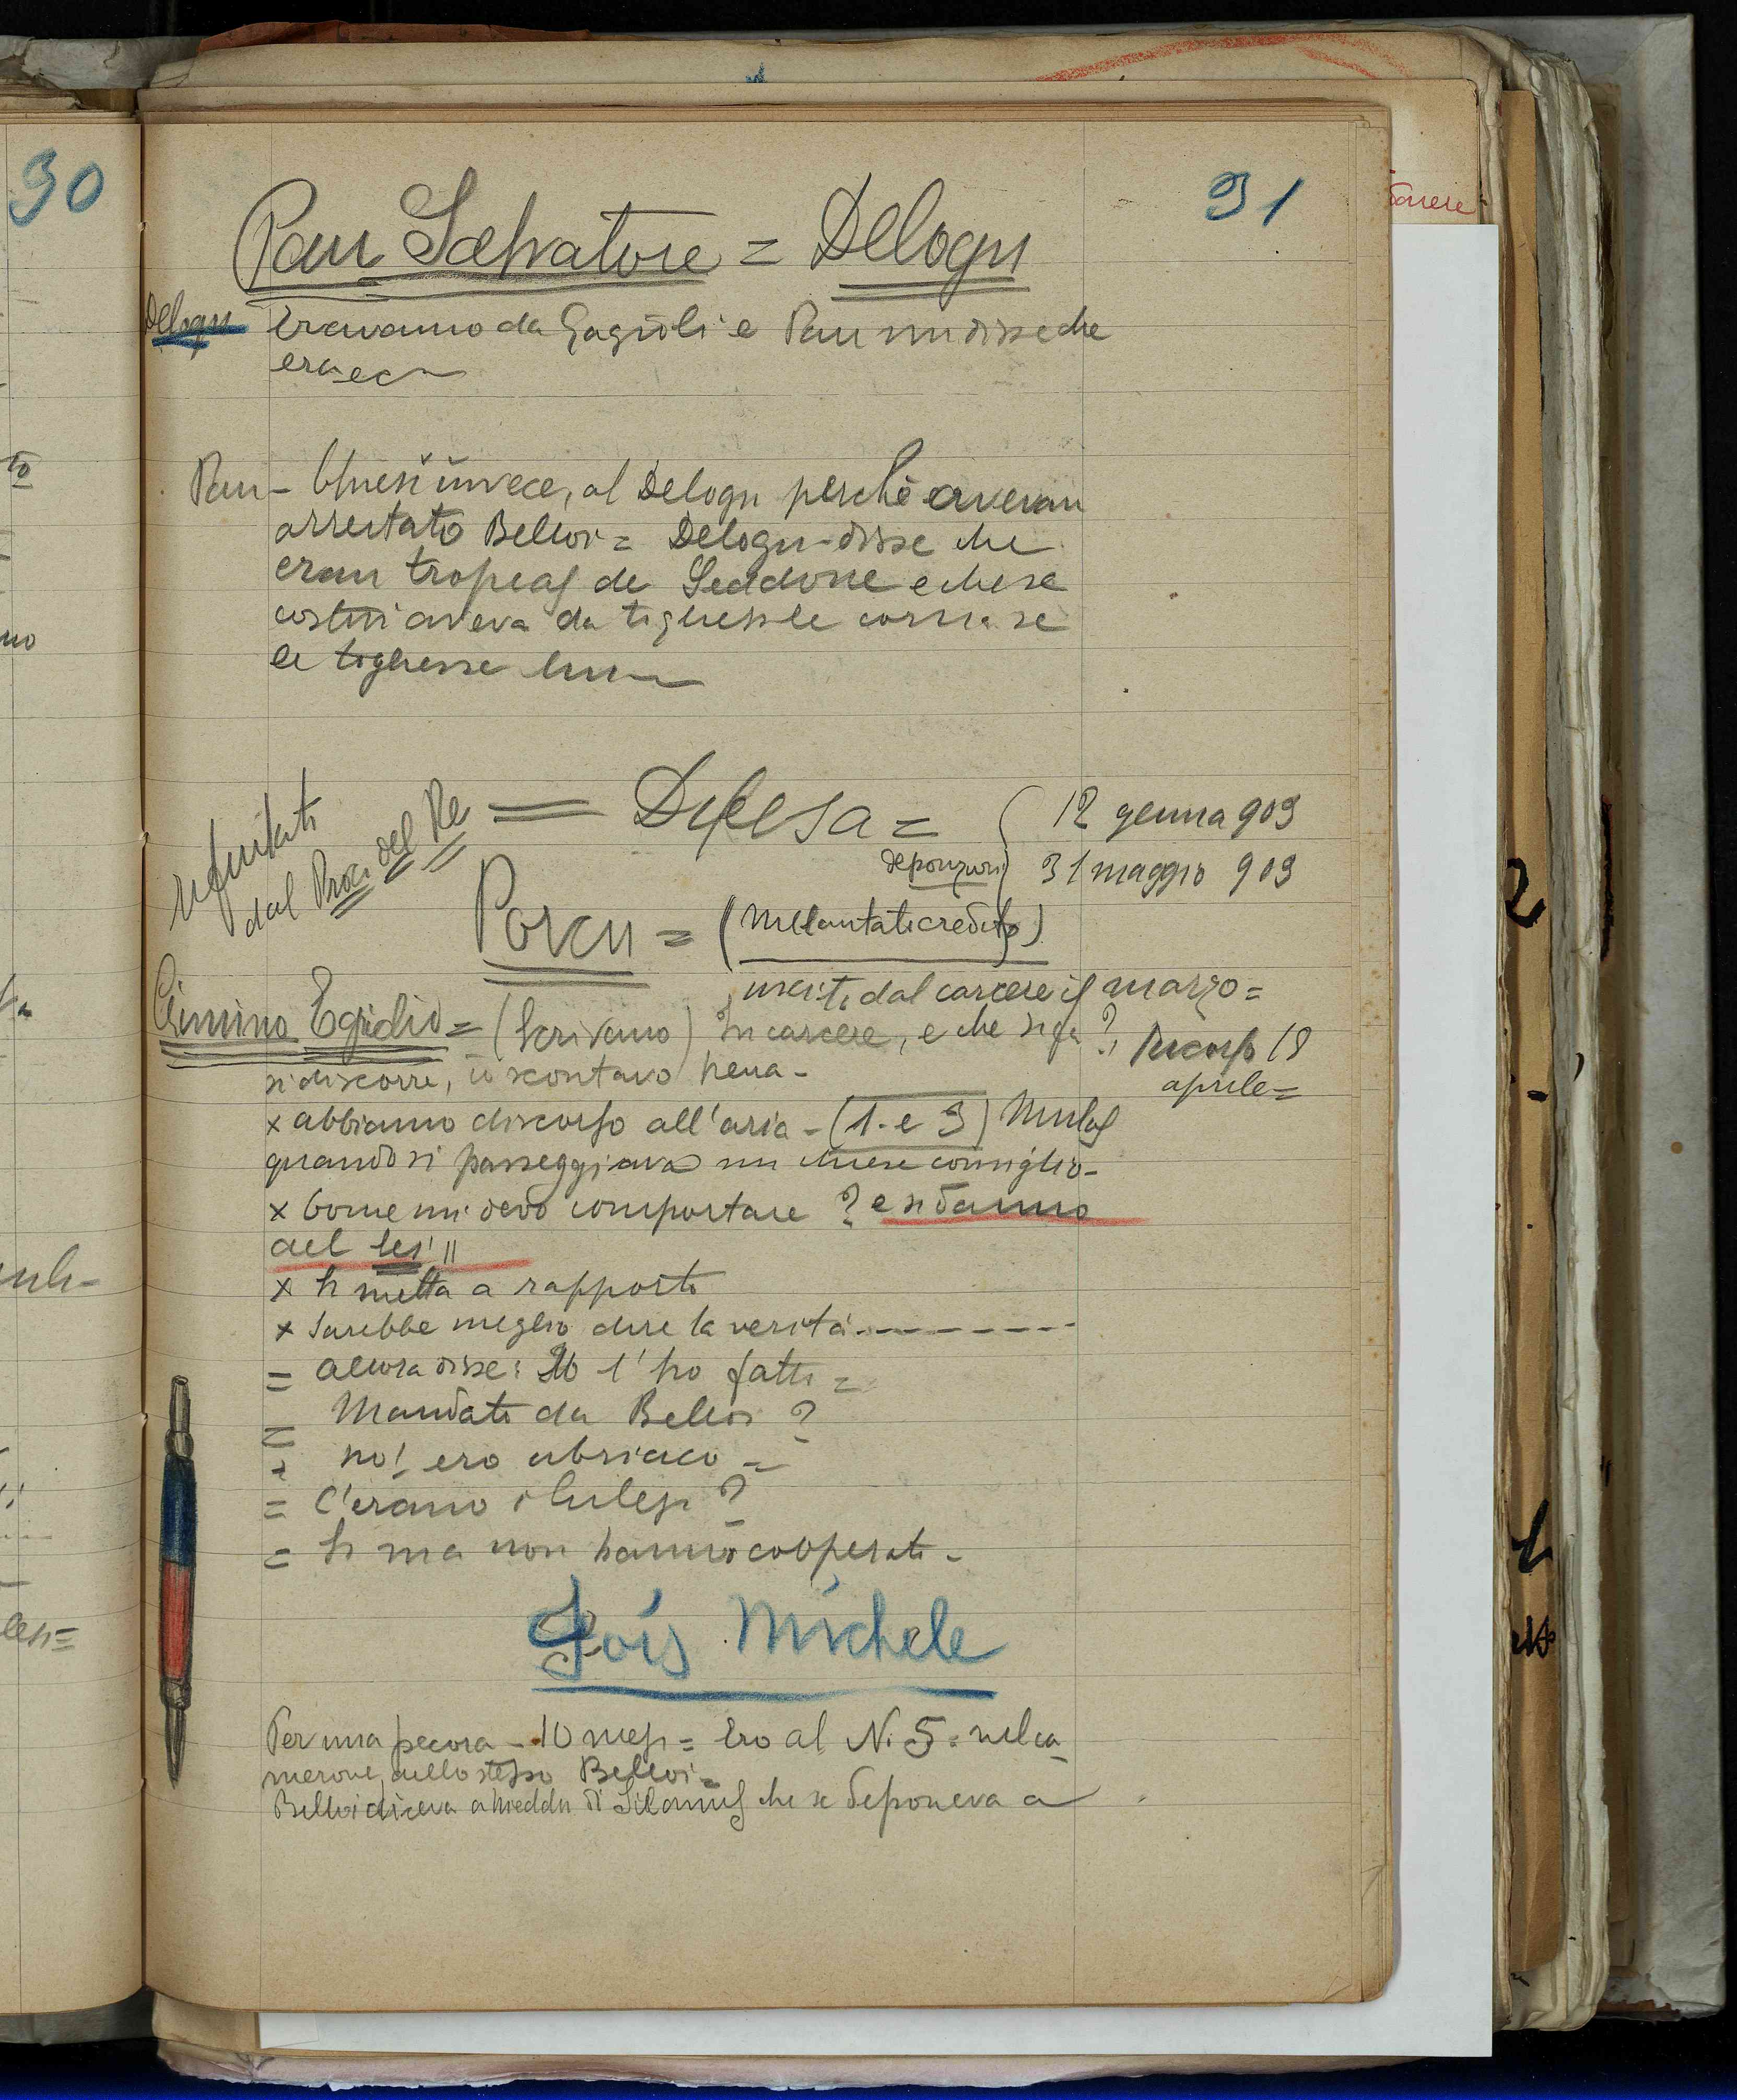 30
31
Pau Salvatore = Delogu
Delogu Eravamo da Gaginoli e Pau mi disse che
era ec
Pau - Chiesi invece, al Delogu perchè avevan
arrestato Belloi = Delogu disse che
eran tropeas de Seddone e che se
costui aveva da togliersi le corna se
le togliesse lui
= Difesa =
rifiutati
dal Proc. del Re
deposizioni
12 genna 909
31 maggio 909
Porcu = (Millantato credito)
uscito dal carcere il marzo =
Cimino Egidio = (Scrivano) In carcere, e che si fa?
si discorre, io scontavo pena -
18
aprile =
x abbiamo discorso all'aria - (1. e 3) Mulas
quando si passeggiava mi chiese consiglio -
x Come mi devo comportare? e si danno
del lei "
x Si metta a rapporto
x Sarebbe meglio dire la verità ---------
= allora disse: Io l'ho fatto =
= Mandato da Belloi?
= no! ero ubriaco =
= C'erano i
= Si ma non hanno cooperato -
Fois Michele
Per una pecora - 10 mesi = Ero al N. 5 = nel ca
merone dello stesso Belloi =
Belloi diceva a di Silanus che se deponeva a